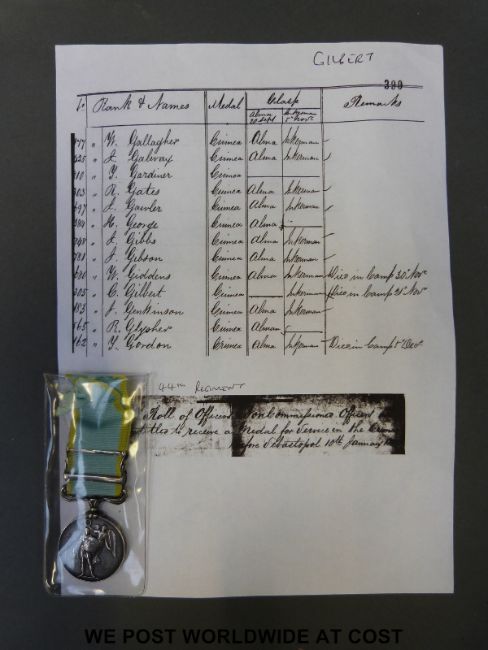 GILBERT
399
No. Rank & Names Medal Clasp Remarks
Alma 20 Sept Inkerman 5 Nov
" W. Gallagher Crimea Alma Inkerman
" J. Galway Crimea Alma Inkerman
" Y. Gardiner Crimea
" R. Gates Crimea Alma Inkerman
" J. Gawler Crimea Alma Inkerman
" H. George Crimea Alma
" J. Gibbs Crimea Alma Inkerman
" J. Gibson Crimea Alma Inkerman
" W. Giddens Crimea Alma Inkerman Died in Camp 30 Nov
" C. Gilbert Crimea Inkerman Died in Camp Nov
" J. Genkinson Crimea Alma Inkerman
" R. Glysher Crimea Alma
" Y. Gordon Crimea Alma Inkerman Died in Camp Dec
44TH REGIMENT
Roll of Officers Non Commissioned Officers
to receive a Medal for Service in the
before Sebastopol 10th January
WE POST WORLDWIDE AT COST